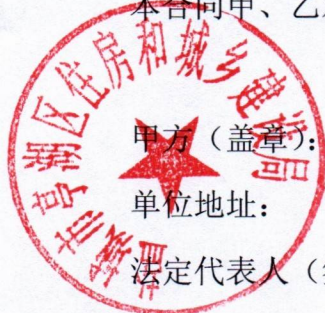 本合同甲、乙
甲方（盖章）：
单位地址：
法定代表人（
盐城市亭湖区住房和城乡建设局